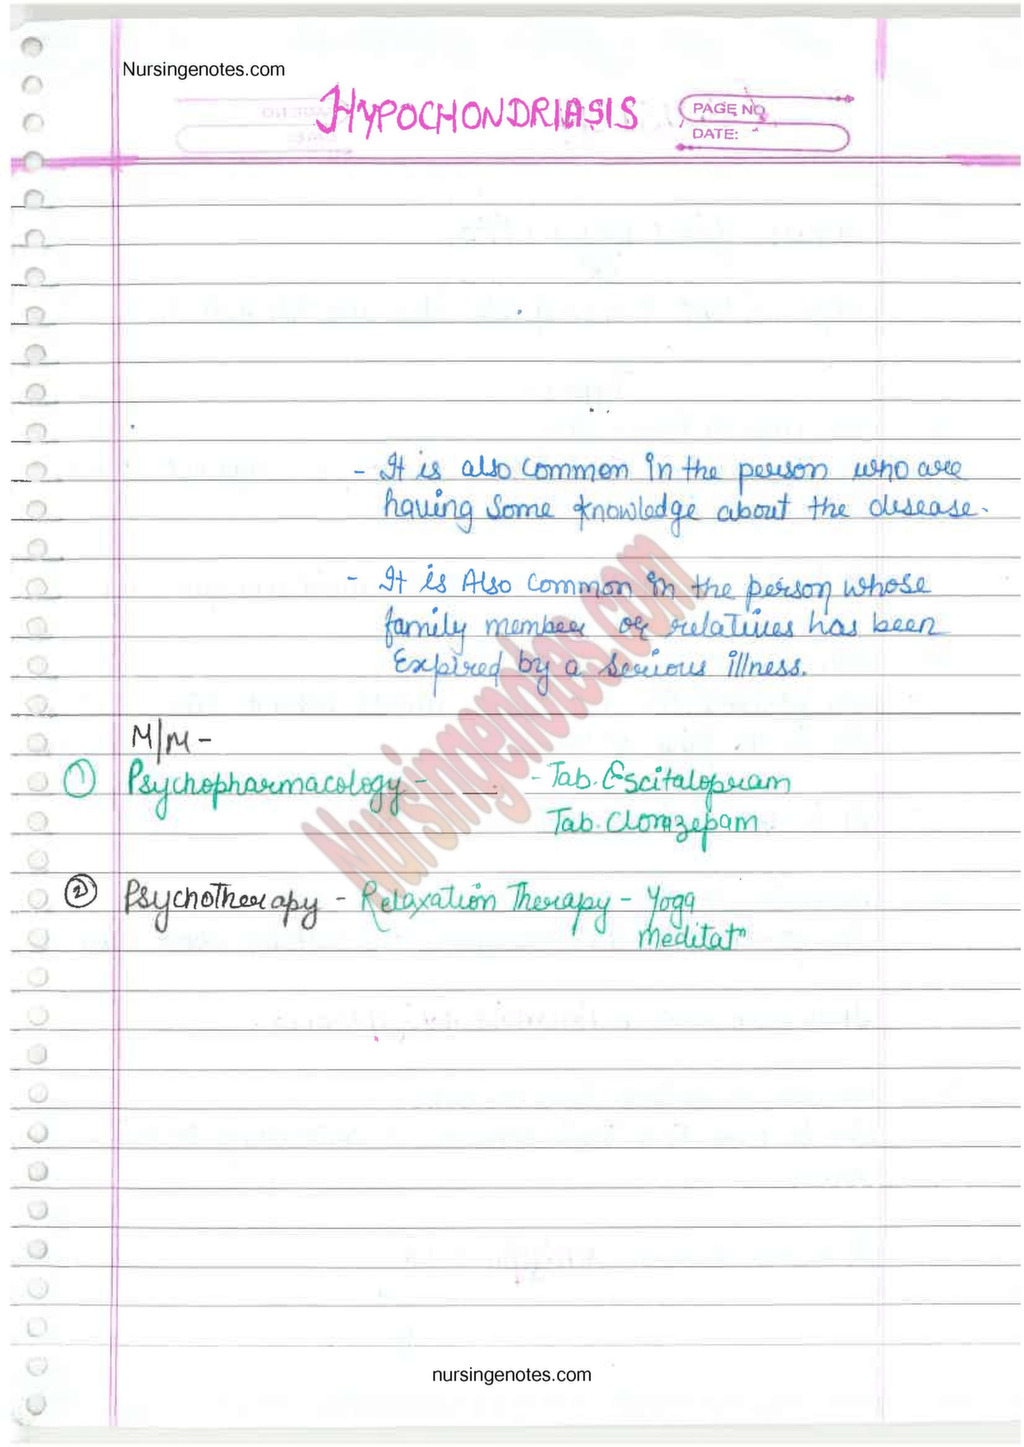 Nursingenotes.com
HYPOCHONDRIASIS
PAGE NO.
DATE:
- It is also common in the person who are
having some knowledge about the disease.
- It is Also common in the person whose
family member or relatives has been
Expired by a serious illness.
M/M -
① Psychopharmacology - - Tab. Escitalopram
Tab. Clonazepam
② Psychotherapy - Relaxation Therapy - Yoga
meditatⁿ
Nursingenotes.com
nursingenotes.com